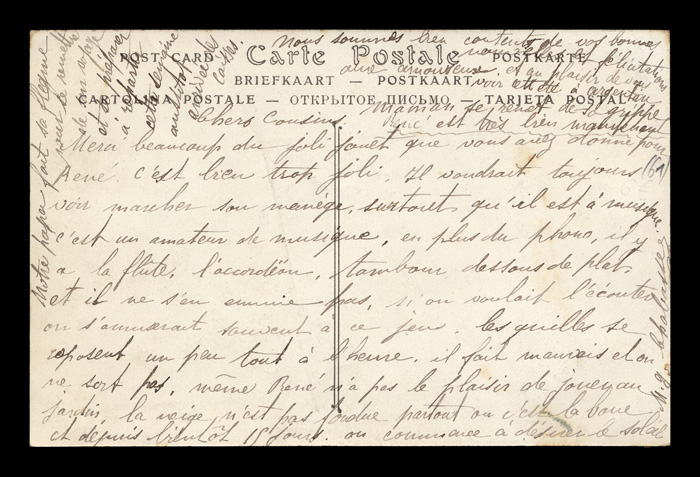 Nous sommes bien contents de vos bonnes
nouvelles et félicitations
aux amoureux. et au plaisir de vous
voir cet été à
POST CARD Carte Postale POSTKARTE
BRIEFKAART — POSTKAART
CARTOLINA POSTALE — ОТКРЫТОЕ ПИСЬМО — TARJETA POSTAL
Maman se remet de sa grippe
René est très bien maintenant
Chers Cousins.
Merci beaucoup du joli jouet que vous avez donné pour
René. c'est bien trop joli. Il voudrait toujours
voir marcher son manège, surtout qu'il est à musique.
c'est un amateur de musique, en plus du phono, il y
a la flûte, l'accordéon, tambour dessous de plat.
et il ne s'en ennuie pas, si on voulait l'écouter
on s'amuserait souvent à ce jeu. les quilles se
reposent un peu tout à l'heure. il fait mauvais et on
ne sort pas, même René n'a pas le plaisir de jouer au
jardin, la neige n'est pas fondue partout ou c'est la boue
et depuis bientôt 15 jours. on commence à désirer le soleil
Notre papa fait sa flegme
pour se remettre
de son voyage
et se préparer
à repartir
cette semaine